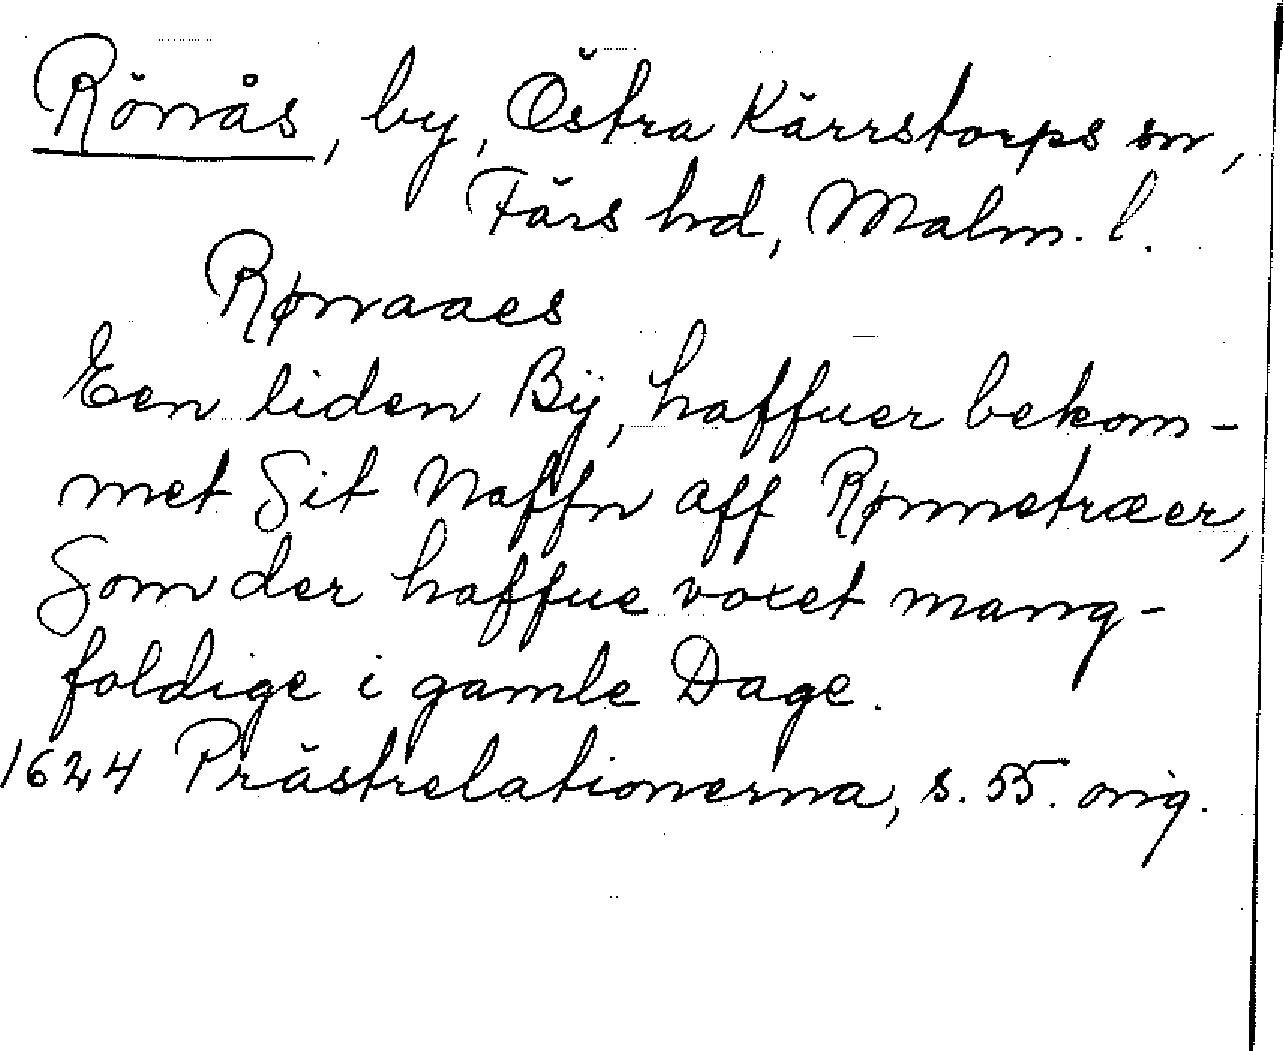 Rönås, by, Östra Kärrstorps sn,
Färs hd, Malm. l.
Rønaaes
Een liden Bÿ, haffuer bekom-
met Sit Naffn aff Rønnetræer,
Som der haffue voxet mang-
foldige i gamle Dage.
1624 Prästrelationerna, s. 55. orig.